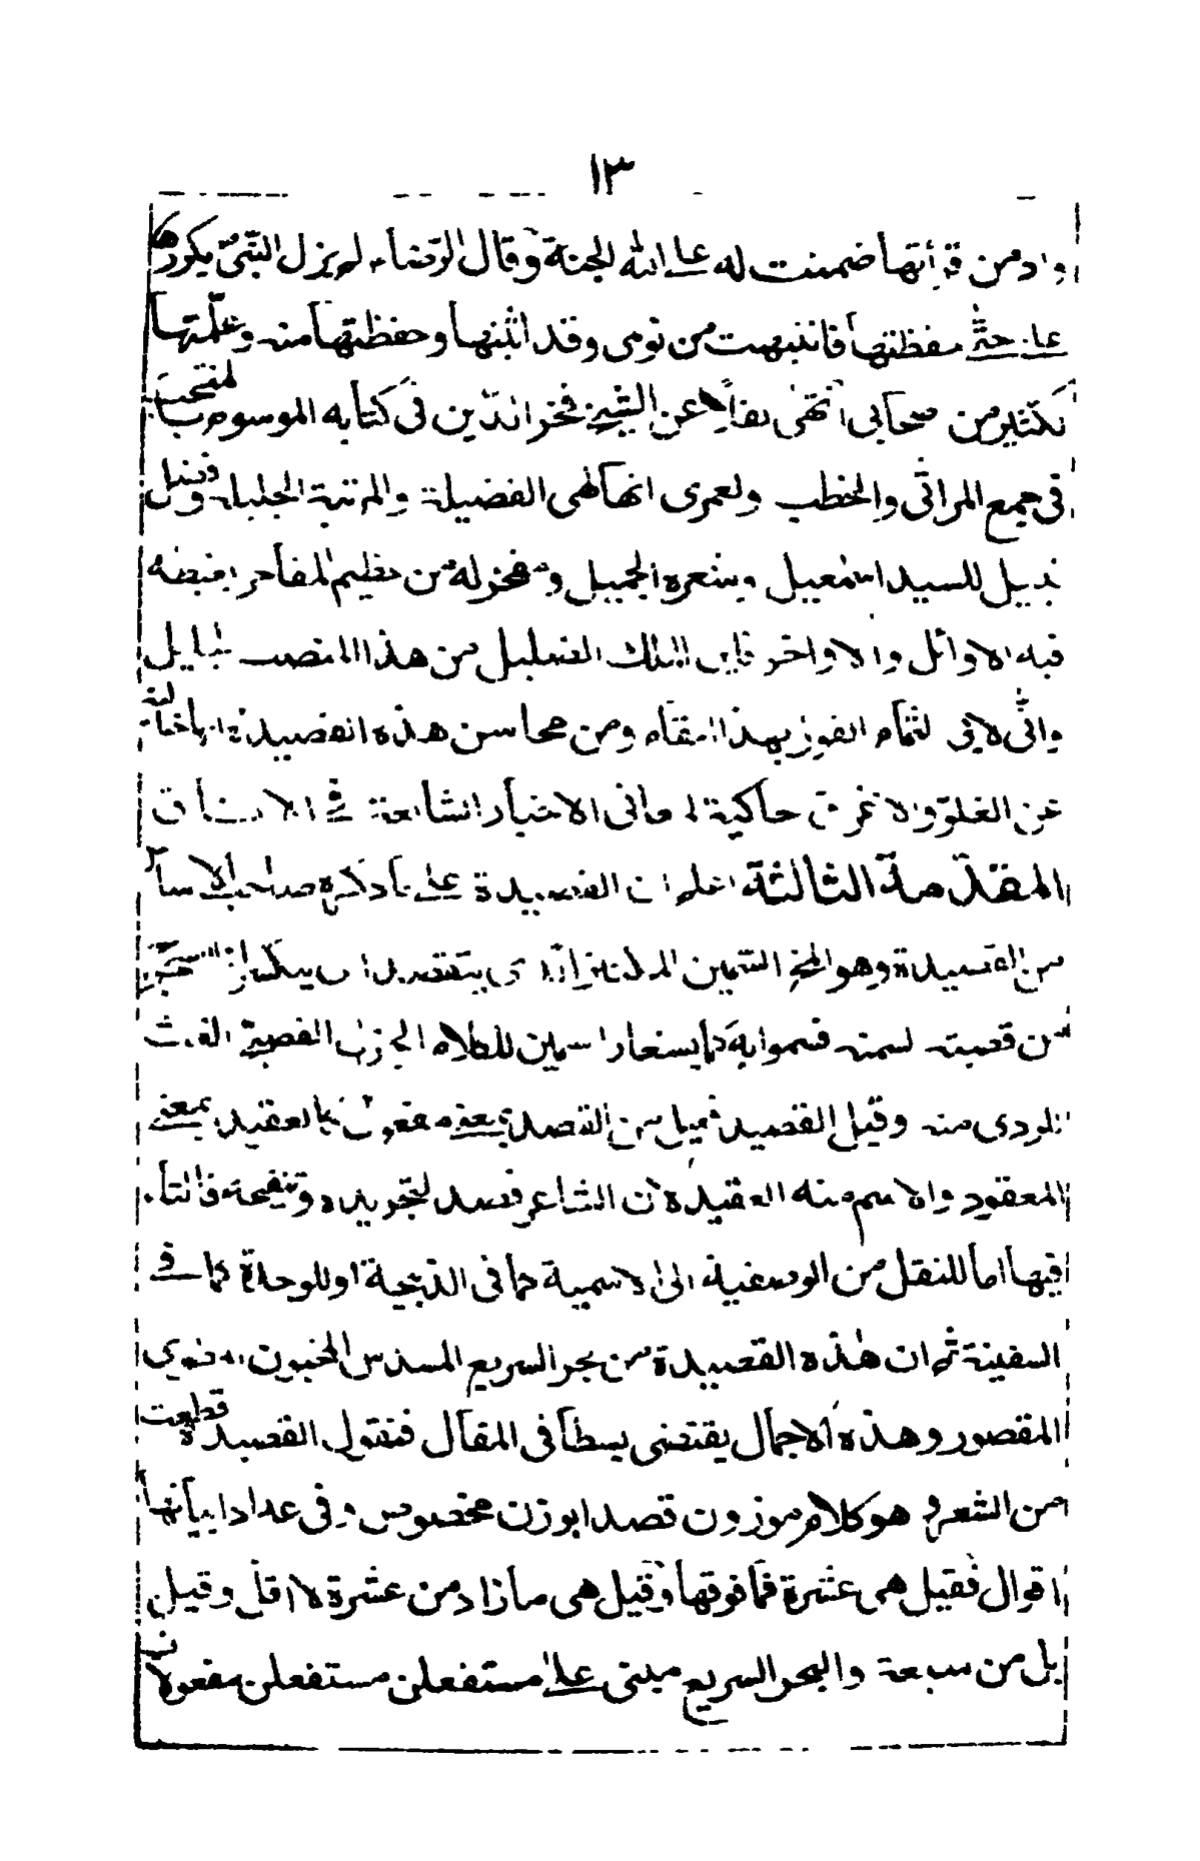 ١٣
واد من قرأتها ضمنت له على الله الجنة وقال الرضاء لم يزل النبىّ يكررها
على حتىّ حفظتها فانتبهت من نومى وقد اثبتها وحفظتها منه وعلّمتها
لكثير من صحابى انتهى نقلا عن الشيخ فخر الدّين فى كتابه الموسوم بالمنتخب
فى جمع المراثى والخطب ولعمرى انها لهى الفضيلة والمرتبة الجليلة وفضل
نبيل للسيد اسمعيل وشعره الجميل ومفخر له من عظيم المفاخر يغبضه
فيه الاوائل والاواخر فاين الملك الضليل من هذا المنصب
وانّى لا فى تمام الفوز بهذا المقام ومن محاسن هذه القصيدة انها خالية
عن الغلوّ والاغراق حاكية لمعانى الاخبار الشايعة فى
المقدّمة الثالثة اعلم ان القصيدة على ما ذكره صاحب الاساس
من القصيدة وهو المخ السّمين الذى يتقصد اى يتكسر اذا
من قصبته لسمنه فسموا به كما يستعار السمين للكلام الجزل الفصيح والغث
للردى منه وقيل القصيد فعيل من القصد بمعنى مفعول كالعقيد بمعنى
المعقود والاسم منه العقيدة لان الشاعر قصد لتجويده وتنقيحه فالتاء
فيها اما للنقل من الوصفية الى الاسمية كما فى الذبيحة او للوحدة كما فى
السفينة ثم ان هذه القصيدة من بحر السريع المسدس المخبون المطوى
المقصور وهذه الاجمال يقتضى بسطا فى المقال فنقول القصيدة قطعت
من الشعر و هو كلام موزون قصدا بوزن مخصوص وفى عداد ابياتها
اقوال فقيل هى عشرة فما فوقها وقيل هى ما زاد من عشرة لا اقل وقيل
بل من سبعة والبحر السريع مبنى على مستفعلن مستفعلن مفعولات